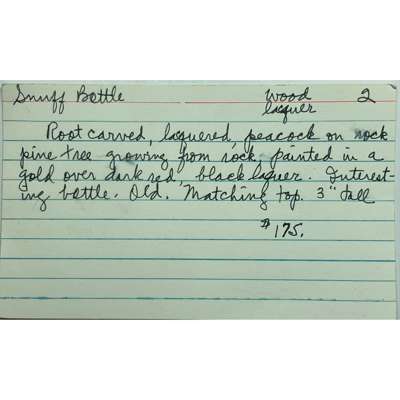 Snuff Bottle wood 2
laquer
Root carved, laquered, peacock on rock
pine tree growing from rock, painted in a
gold over dark red, black laquer. Interest-
ing bottle. Old. Matching top. 3" tall
$175.